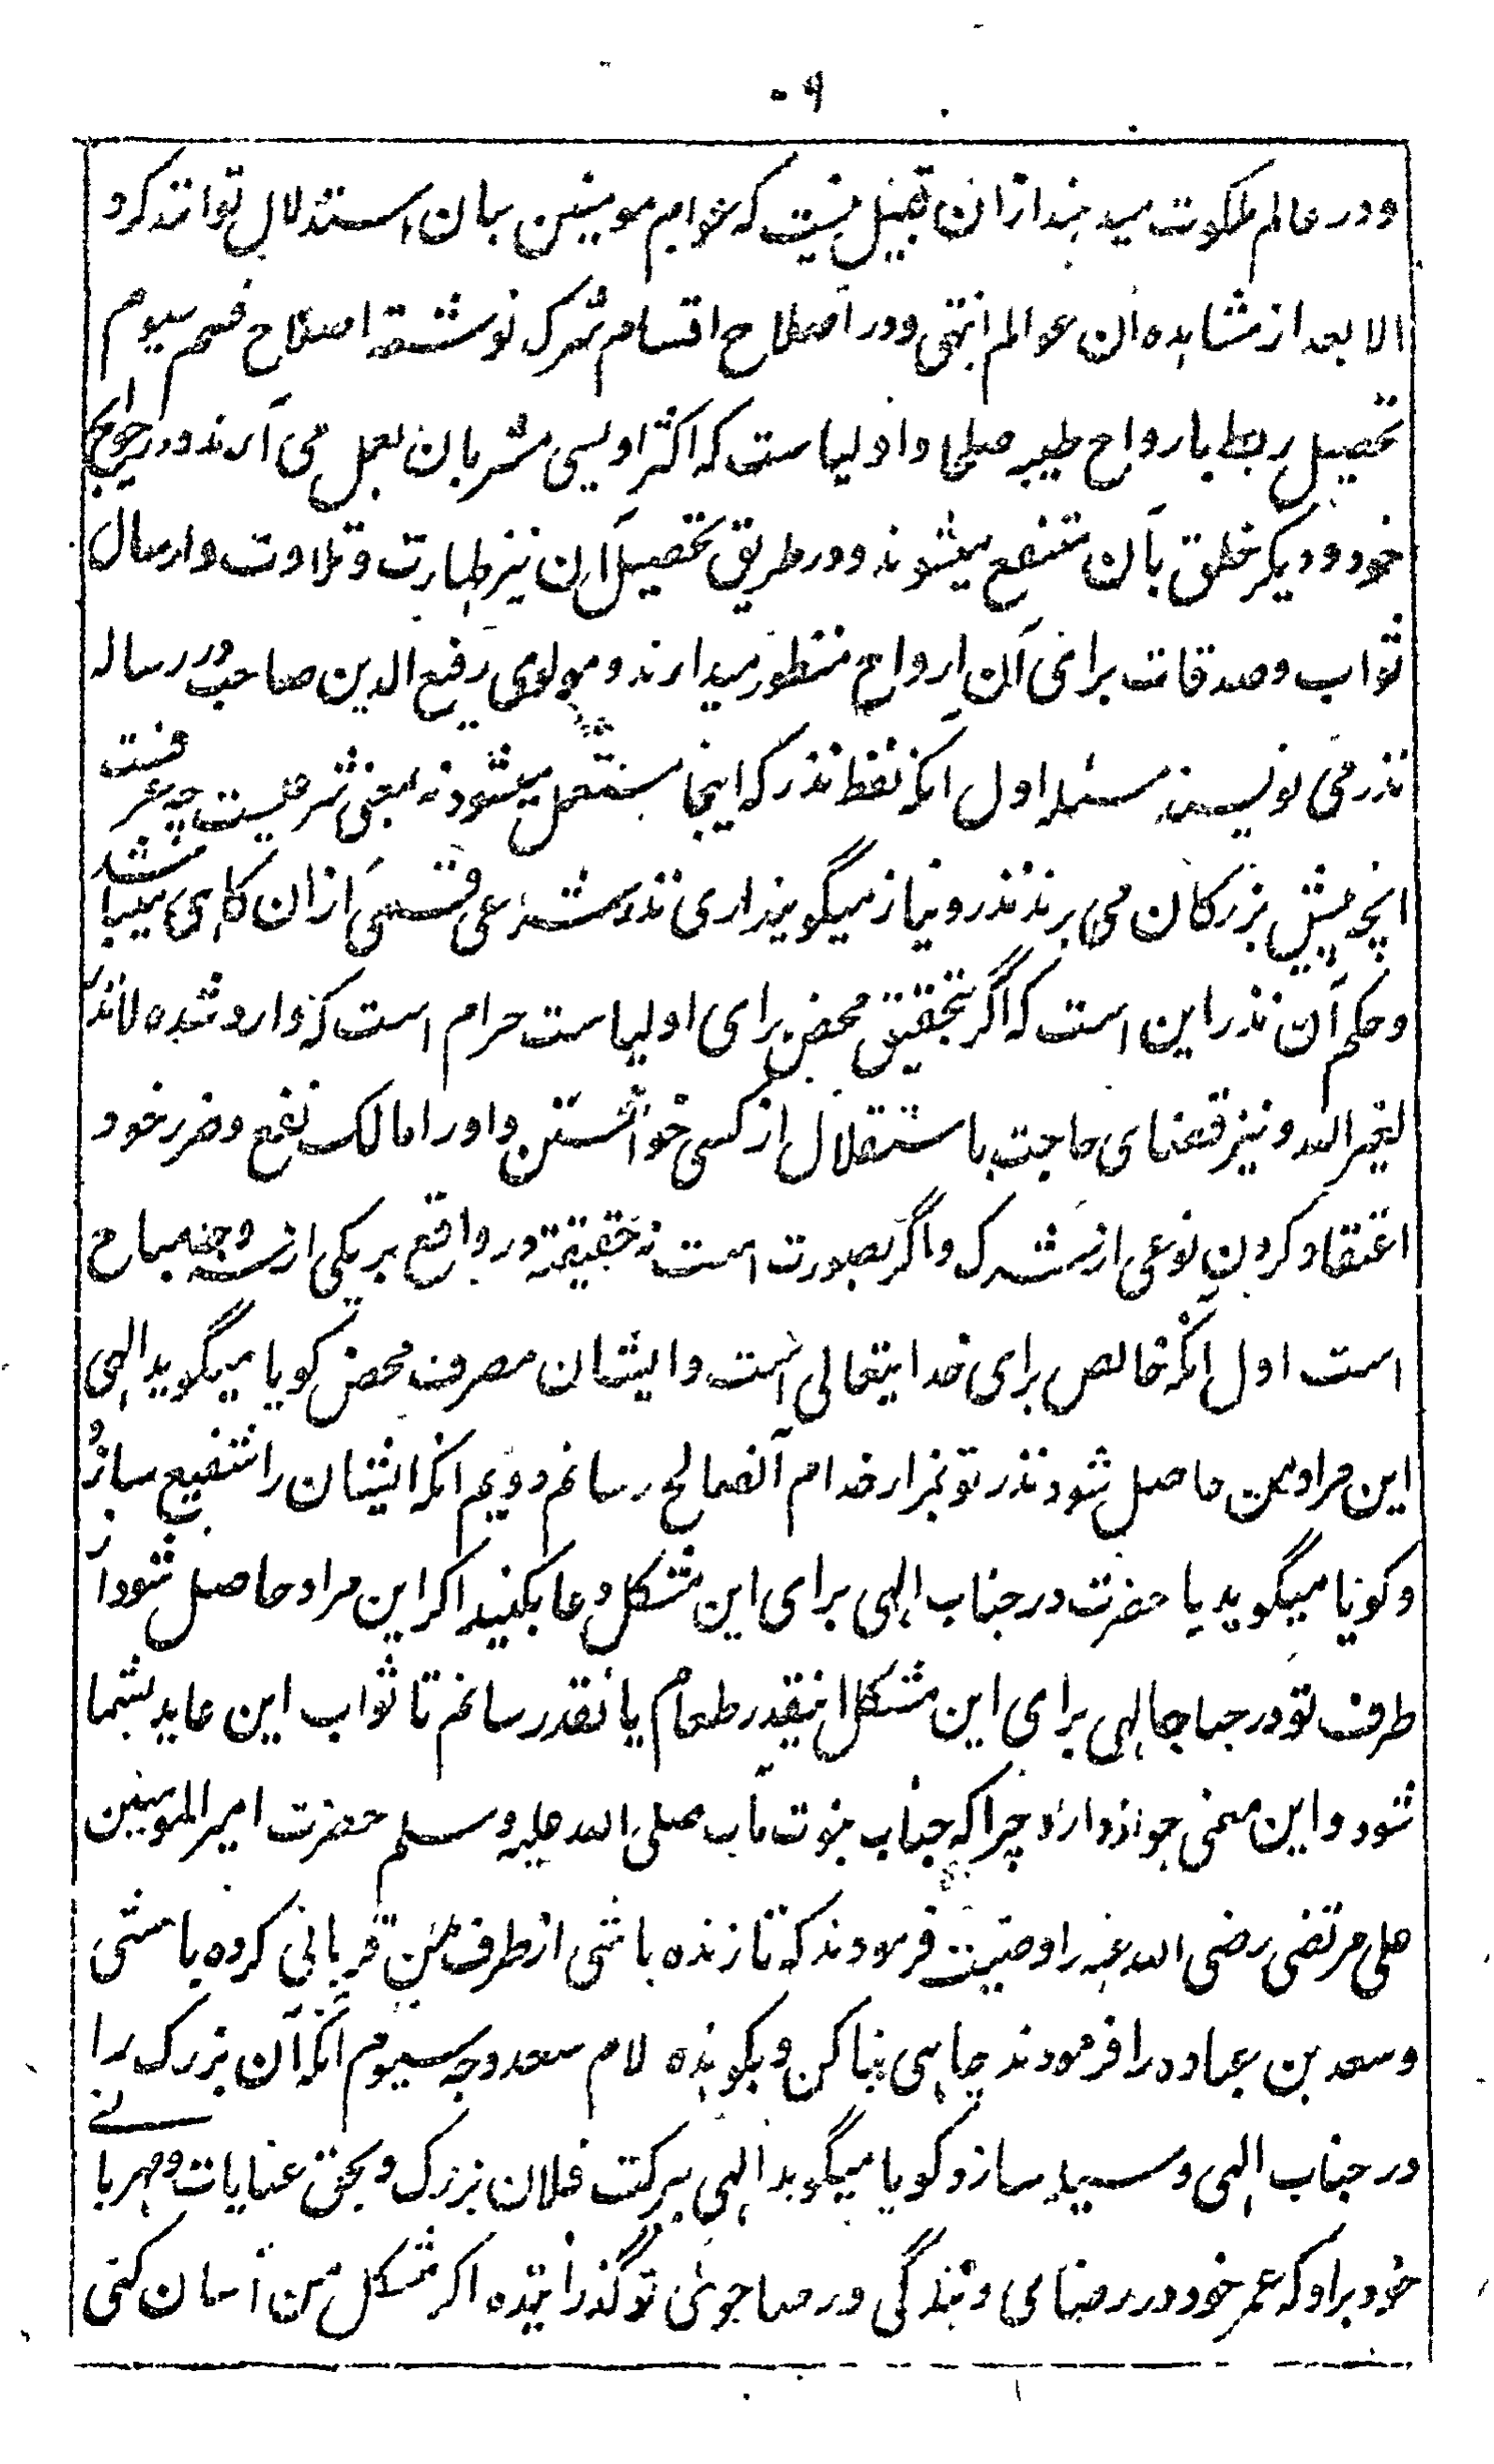 ۹۰
ودر عالم ملکوت میدهند ازان قبیل نیست که عوام مومنین بان استدلال توانند کرد
الا بعد از مشاهده ان عوالم انتهی ودر اصلاح اقسام شرک نوشته اصلاح قسم سیوم
تحصیل ربط بارواح طیبه صلحا واولیاست که اکثر اویسی مشربان بعمل می آرند ودر حوایج
خود ودیکر خلق بآن منتفع میشوند ودر طریق تحصیل آن نیز طهارت وتلاوت وارسال
ثواب وصدقات برای آن ارواح منظور میدارند ومولوی رفیع الدین صاحب در رساله
نذر می نویسند مسئله اول انکه لفظ نذر که اینجا مستعمل میشود نه بمعنی شرعیست چه عرفست
انچه پیش بزرکان می برند نذر ونیاز میگویند اری نذر شرعی قسمی ازان کاری میباشد
وحکم آن نذر این است که اگر بتحقیق محض برای اولیاست حرام است که وارد شده لانذر
لغیر الله ونیز قضای حاجت باستقلال از کسی خواستن واورا مالک نفع وضرر خود
اعتقاد کردن نوعی از شرک واگر بصورت است نه حقیقة در واقع بر یکی از سه وجه مباح
است اول آنکه خالص برای خدایتعالی است وایشان مصرف محض کویا میگوید الهی
این مراد من حاصل شود نذر تو بمزار خدام آنصالح رسانم دویم انکه ایشان را شفیع سازد
وکویا میگوید یا حضرت در جناب الهی برای این مشکل دعا بکنید اکر این مراد حاصل شود از
طرف تو در جناب الهی برای این مشکل اینقدر طعام یا نقد رسانم تا ثواب این عاید بشما
شود واین معنی جواز دارد چرا که جناب نبوت مآب صلی الله علیه وسلم حضرت امیر المومنین
علی مرتضی رضی الله عنه را وصیت فرمودند که تا زنده باشی از طرف من قربانی کرده باشی
وسعد بن عباده را فرمودند چاهی بنا کن وبکو هذه لام سعد وجه سیوم آنکه آن بزرک را
در جناب الهی وسیله سازد وکویا میگوید الهی ببرکت فلان بزرک وبحق عنایات ومهربانی
خود بر او که عمر خود در رضای وبندگی ورضا جوئی تو گذرانیده اکر مشکل من آسان کنی